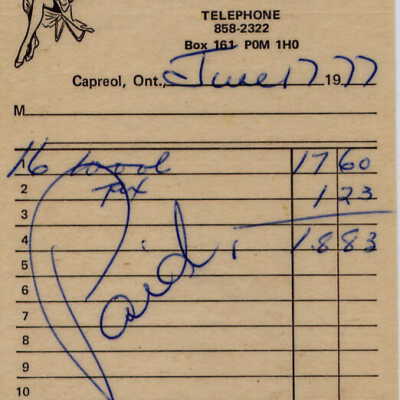 TELEPHONE
858-2322
Box 161 P0M 1H0
Capreol, Ont., June 17 1977
M
16 wool 17 60
2 Tax 1 23
3
4 18 83
5 Paid.
6
7
8
9
10